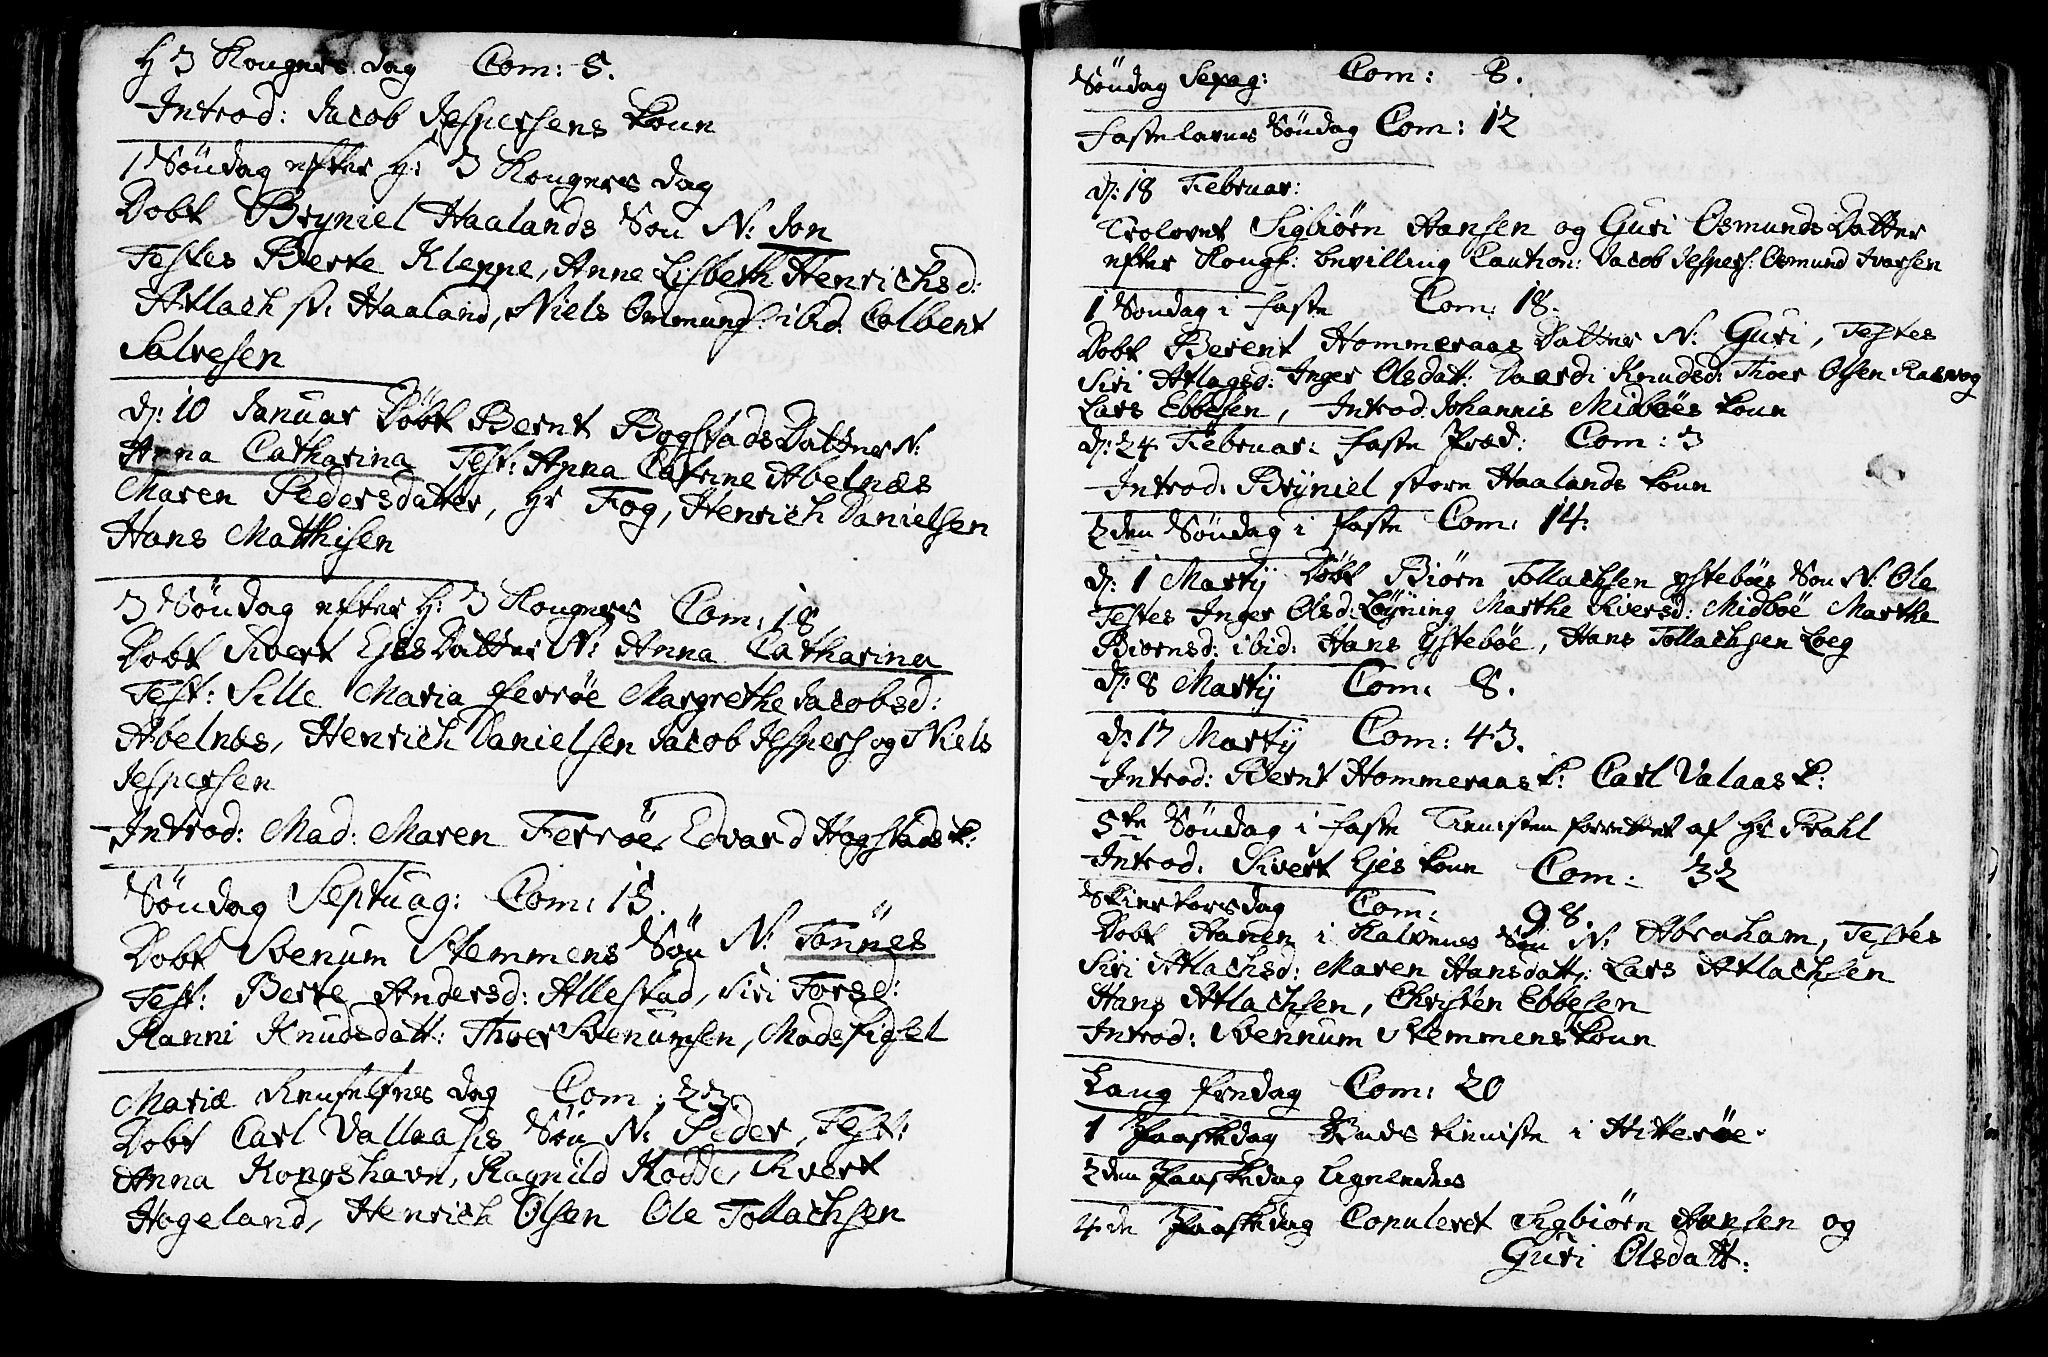 H 3 Kongers dag Com: 5.
Introd: Jacob Jespersens koun
1 Söndag efter H: 3 Kongers dag
Dobt Bryniel Haalands Son N: Jon
Testes Berte Kleppe, Anne Lisbeth Henrichsd:
Atlach st: Haaland, Niels Ommunds: ibid Colbent
Salvesen
d: 10 Januar Döbt Bernt Bogstads Datter N:
Anna Catharina Test: Anna Catrine Abelnæs
Maren Pedersdatter, Hr Fog, Henrich Danielsen
Hans Matthisen
3 Söndag efter H: 3 Kongers Com: 18
Dobt Sivert Ejes Datter N: Anna Catharina
Test: Sille Maria Ferröe Margrethe Jacobsd:
Abelnæs, Henrich Danielsen Jacob Jespers og Niels
Jespersen
Introd: Mad: Maren Ferröe, Edvard Hogstads k:
Söndag Septuag: Com: 15.
Dobt Svenum Stemmens Sön N: Tönnes
Test: Berte Andersd: Allestad, Siri Torsd:
Ranni Knudsdatt: Thoer Svenumsen, Mads figsel
Mariæ Renselses dag Com: 23
Dobt Carl Vallaasis Sön N: Peder, Test:
Anna Kongshavn, Ragnild Kodde, Sivert
Hogeland, Henrich Olsen Ole Tollachsen
Söndag Sexag: Com: 8.
Fastelavns Söndag Com: 12
d: 18 Februar:
Trolovet Sigbiörn Hansen og Guri Osmunds Datter
efter Kongl: bevilling Caution: Jacob Jespers: Osmund Ivarsen
1 Sondag i faste Com: 18.
Dobt Berent Hommeraas Datter N: Guri, Testes
Siri Atlagsd: Inger Olsdatt: Taardi Knudsd: Thoer Olsen Rasvog
Lars Ebbesen, Introd: Johannis Midböes koun
d: 24 Februar: faste Præd: Com: 3
Introd: Bryniel store Haalands koun
2den Söndag i faste Com: 14.
d: 1 Martij Döbt Biörn Tollachsen ystebões Son N: Ole
Testes Inger Olsd: Löyning Marthe Siversd: Midböe Marthe
Biornsd: ibid: Hans Ysteböe, Hans Tollachsen Loeg
d: 8 Martij Com: 8.
d: 17 Martij Com: 43.
Introd: Bernt Hommeraas k: Carl Valaas k:
5te Söndag i faste Tienisten forrettet af Hr Krahl
Introd: Sivert Ejes koun Com: 32
Skiertorsdag Com: 98
Dobt Hanen i Kalvenes Sön N: Abraham, Testes
Siri Atlachsd: Maren Hansdatt: Lars Atlachsen
Hans Atlachsen, Christen Ebbesen
Introd: Svennum Stemmens koun
Lang fredag Com: 20
1 Paaskedag Guds tieniste i Hitteröe.
2den Paaskedag ligeledes
4de Paaskedag Copuleret Sigbiörn Hansen og
Guri Olsdatt: